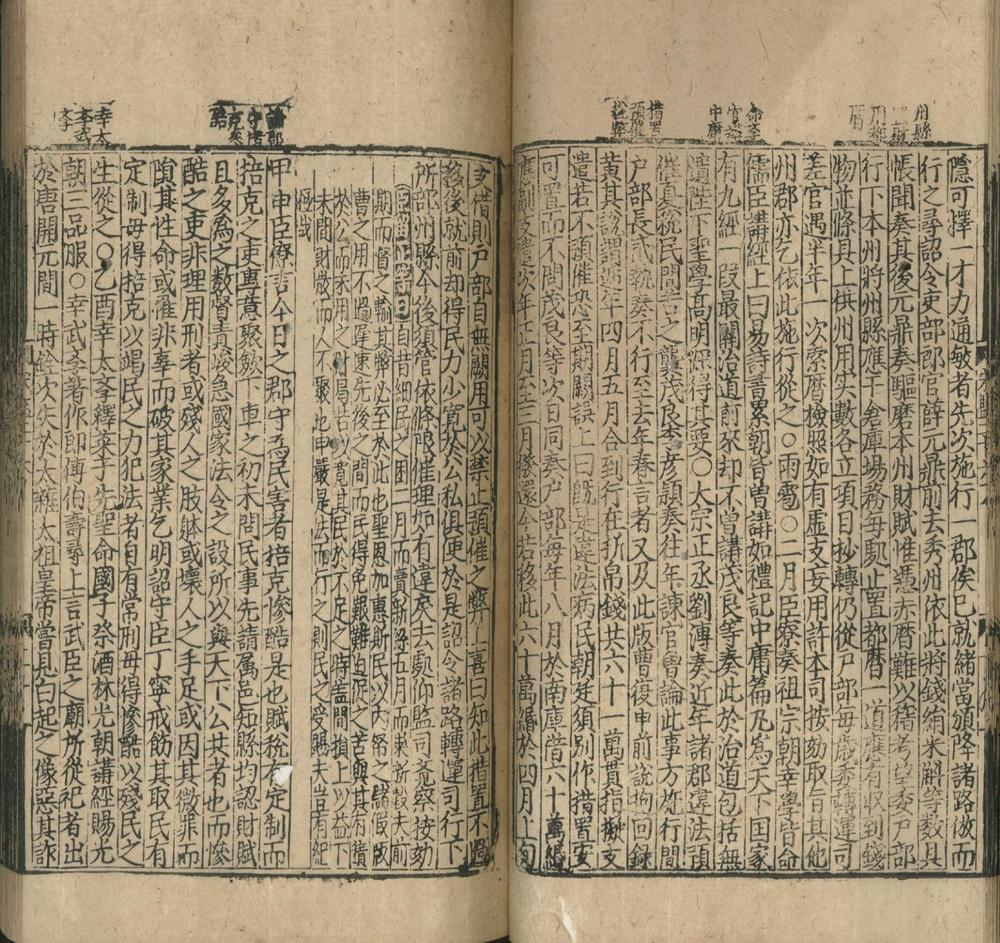 州縣
用都
曆
隱可擇一才力通敏者先次施行一郡俟已就緒當頒降諸路倣而
行之尋詔令吏部郎官薛元鼎前去秀州依此將錢絹米斛等數具
帳聞奏其後元鼎奏驅磨本州財賦惟憑赤曆難以稽考望委户部
行下本州將州縣應干倉庫場務每䖏止置都曆一道應有収到錢
物並條具上供州用实數各立項目抄轉仍從户部每歲委轉運司
差官遇半年一次索曆檢照如有虛支妄用許本司按劾取旨其他
州郡亦乞依此施行從之○雨雹○二月臣寮奏祖宗朝幸學皆命
儒臣講經上曰易詩書累朝皆曽講如禮記中庸篇乃爲天下囯家
有九經一段最關治道前來却不曽講茂良等奏此於治道包括無
遺陛下聖學髙明深得其要○大宗正丞劉溥奏近年諸郡違法預
催夏稅民間苦之龔茂良李彦穎奏徃年諫官曽論此事方施行間
户部長貳執奏不行至去年春言者又及此版曹復申前說拘回録
黄其說謂逐年四月五月合到行在折帛錢共六十一萬貫指擬支
遣若不預催恐至期闕誤上曰旣是違法病民朝廷須別作措置安
可置而不問茂良等次日同奏户部每年八月於南庫借六十萬緡
應副支遣次年正月至三月撥還今若移此六十萬緡於四月上旬
支借則户部自無闕用可以禁止預催之弊上喜曰如此措置不過
移後就前却得民力少寬於公私俱便於是詔令諸路轉運司行下
所部州縣今後須管依條限催理如有違戾去處仰監司覺察按劾
自昔細民之困二月而賣新絲五月而糶新穀夫前
期而督之輸其弊必至於此也聖恩加惠斯民以內帑之儲假版
曹之用不過遲速先後之間而民得免艱難迫促之苦與其有積
於公而未用之財曷若以寬其民於不足之時盖聞損上以益下
未聞財散而人不聚也申嚴是法而行之則民之受賜夫豈有紀
極哉
甲申臣僚言今日之郡守爲民害者掊克慘酷是也賦稅有定制而
掊克之吏專意聚歛下車之初未問民事先請属邑知縣均認財賦
且多爲之數督責峻急國家法令之設所以與天下公共者也而慘
酷之吏非理用刑者或殘人之肢躰或壞人之手足或因其微罪而
隕其性命或罹非辜而破其家業乞明詔守臣丁寧戒飭其取民有
定制毋得掊克以竭民之力犯法者自有常刑毋得慘酷以殘民之
生從之○乙酉幸太學釋菜于先聖命國子祭酒林光朝講經賜光
朝三品服○幸武學著作郎傅伯壽尋上言武臣之廟所從祀者出
於唐開元間一時銓次失於太雜太祖皇帝嘗見白起之像惡其詐
幸太
學武
學